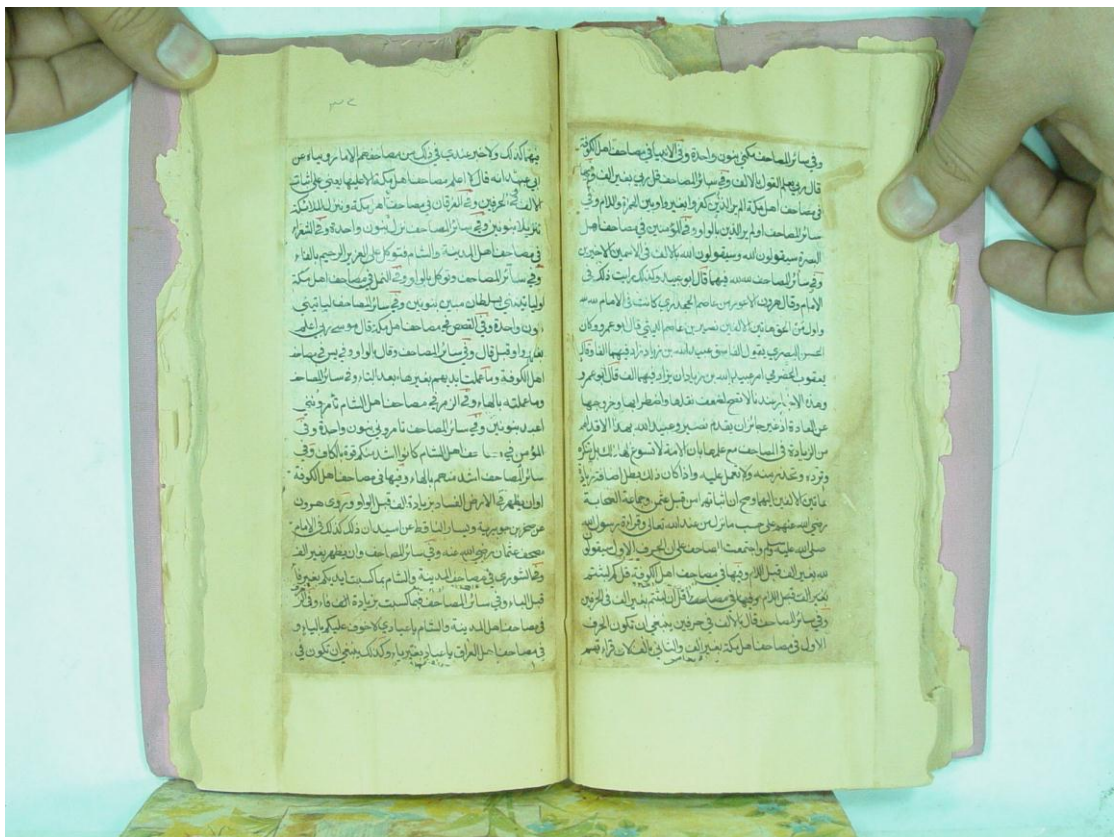 وفي سائر المصاحف مكني بنون واحدة وفي الانبياء في مصاحف اهل الكوفة
قال ربي يعلم القول بالالف وفي سائر المصاحف قل ربي بغير الف وفيها
في مصاحف اهل مكة الم ير الذين كفروا بغير واو بين الهمزة واللام وفي
سائر المصاحف اولم ير الذين بالواو وفي المؤمنين في مصاحف اهل
البصرة سيقولون الله وسيقولون الله بالالف في الاسمين الاخيرين
وفي سائر المصاحف لله لله فيهما قال ابو عبيد وكذلك رايت ذلك في
الامام وقال هرون الاعور عن عاصم الجحدري كانت في الامام لله لله
واول من الحق هاتين الالفين نصير بن عاصم الليثي قال ابو عمرو وكان
الحسن البصري يقول الفاسق عبيد الله بن زياد زاد فيهما الفا وقال
يعقوب الحضرمي امر عبيد الله بن زياد ان يزاد فيهما الف قال ابو عمرو
وهذه الاخبار عندنا لا تصح لضعف نقلها واضطرابها وخروجها
عن العادة اذ غير جائز ان يقدم نصير وعبيد الله بهذا الاقدام
من الزيادة في المصاحف مع علمهما بان الامة لا تسوغ لهما ذلك بل تنكره
وترده وتحذر منه ولا تعمل عليه واذا كان ذلك بطل اضافة زيادة
هاتين الالفين اليهما وصح ان اثباتهما من قبل عثمن وجماعة الصحابة
رضي الله عنهم على حسب ما نزل من عند الله تعالى وقراءة رسول الله
صلى الله عليه وسلم واجتمعت المصاحف على ان الحرف الاول سيقولون
لله بغير الف قبل اللام وفيها في مصاحف اهل الكوفة قل كم لبثتم
بغير الف قبل اللام وفيها في مصاحفنا قل ان لبثتم بغير الف في الحرفين
وفي سائر المصاحف قال بالالف في حرفين ينبغي ان تكون الحرف
الاول في مصاحف اهل مكة بغير الف والثاني بالالف لان قراءتهم
فيهما كذلك ولا خبر عندنا في ذلك من مصاحفهم الا ما رويناه عن
ابي عبيد انه قال لا اعلم مصاحف اهل مكة الا عليها يعني على اثبات
الالف في الحرفين وفي الفرقان في مصاحف اهل مكة وننزل الملائكة
تنزيلا بنونين وفي سائر المصاحف نزل بنون واحدة وفي الشعراء
في مصاحف اهل المدينة والشام فتوكل على العزيز الرحيم بالفاء
وفي سائر المصاحف وتوكل بالواو وفي النمل في مصاحف اهل مكة
اولياتينني بسلطان مبين بنونين وفي سائر المصاحف لياتيني
بنون واحدة وفي القصص في مصاحف اهل مكة قال موسى ربي اعلم
بغير واو قبل قال وفي سائر المصاحف وقال بالواو وفي يس في مصاحف
اهل الكوفة وما عملت ايديهم بغير هاء بعد التاء وفي سائر المصاحف
وما عملته بالهاء وفي الزمر في مصاحف اهل الشام تأمرونني
اعبد بنونين وفي سائر المصاحف تامروني بنون واحدة وفي
المؤمن في مصاحف اهل الشام كانوا اشد منكم قوة بالكاف وفي
سائر المصاحف اشد منهم بالهاء وفيها في مصاحف اهل الكوفة
او ان يظهر في الارض الفساد بزيادة الف قبل الواو وروى هرون
عن صخر بن جويرية وبسار الناقط عن اسيد ان ذلك كذلك في الامام
مصحف عثمان رضي الله عنه وفي سائر المصاحف وان يظهر بغير الف
وفي الشورى في مصاحف المدينة والشام بما كسبت ايديكم بغير فاء
قبل الباء وفي سائر المصاحف فبما كسبت بزيادة الف فاء وفي الزخرف
في مصاحف اهل المدينة والشام يا عبادي لا خوف عليكم بالياء و
في مصاحف اهل العراق يا عباد بغير ياء وكذلك ينبغي ان تكون في